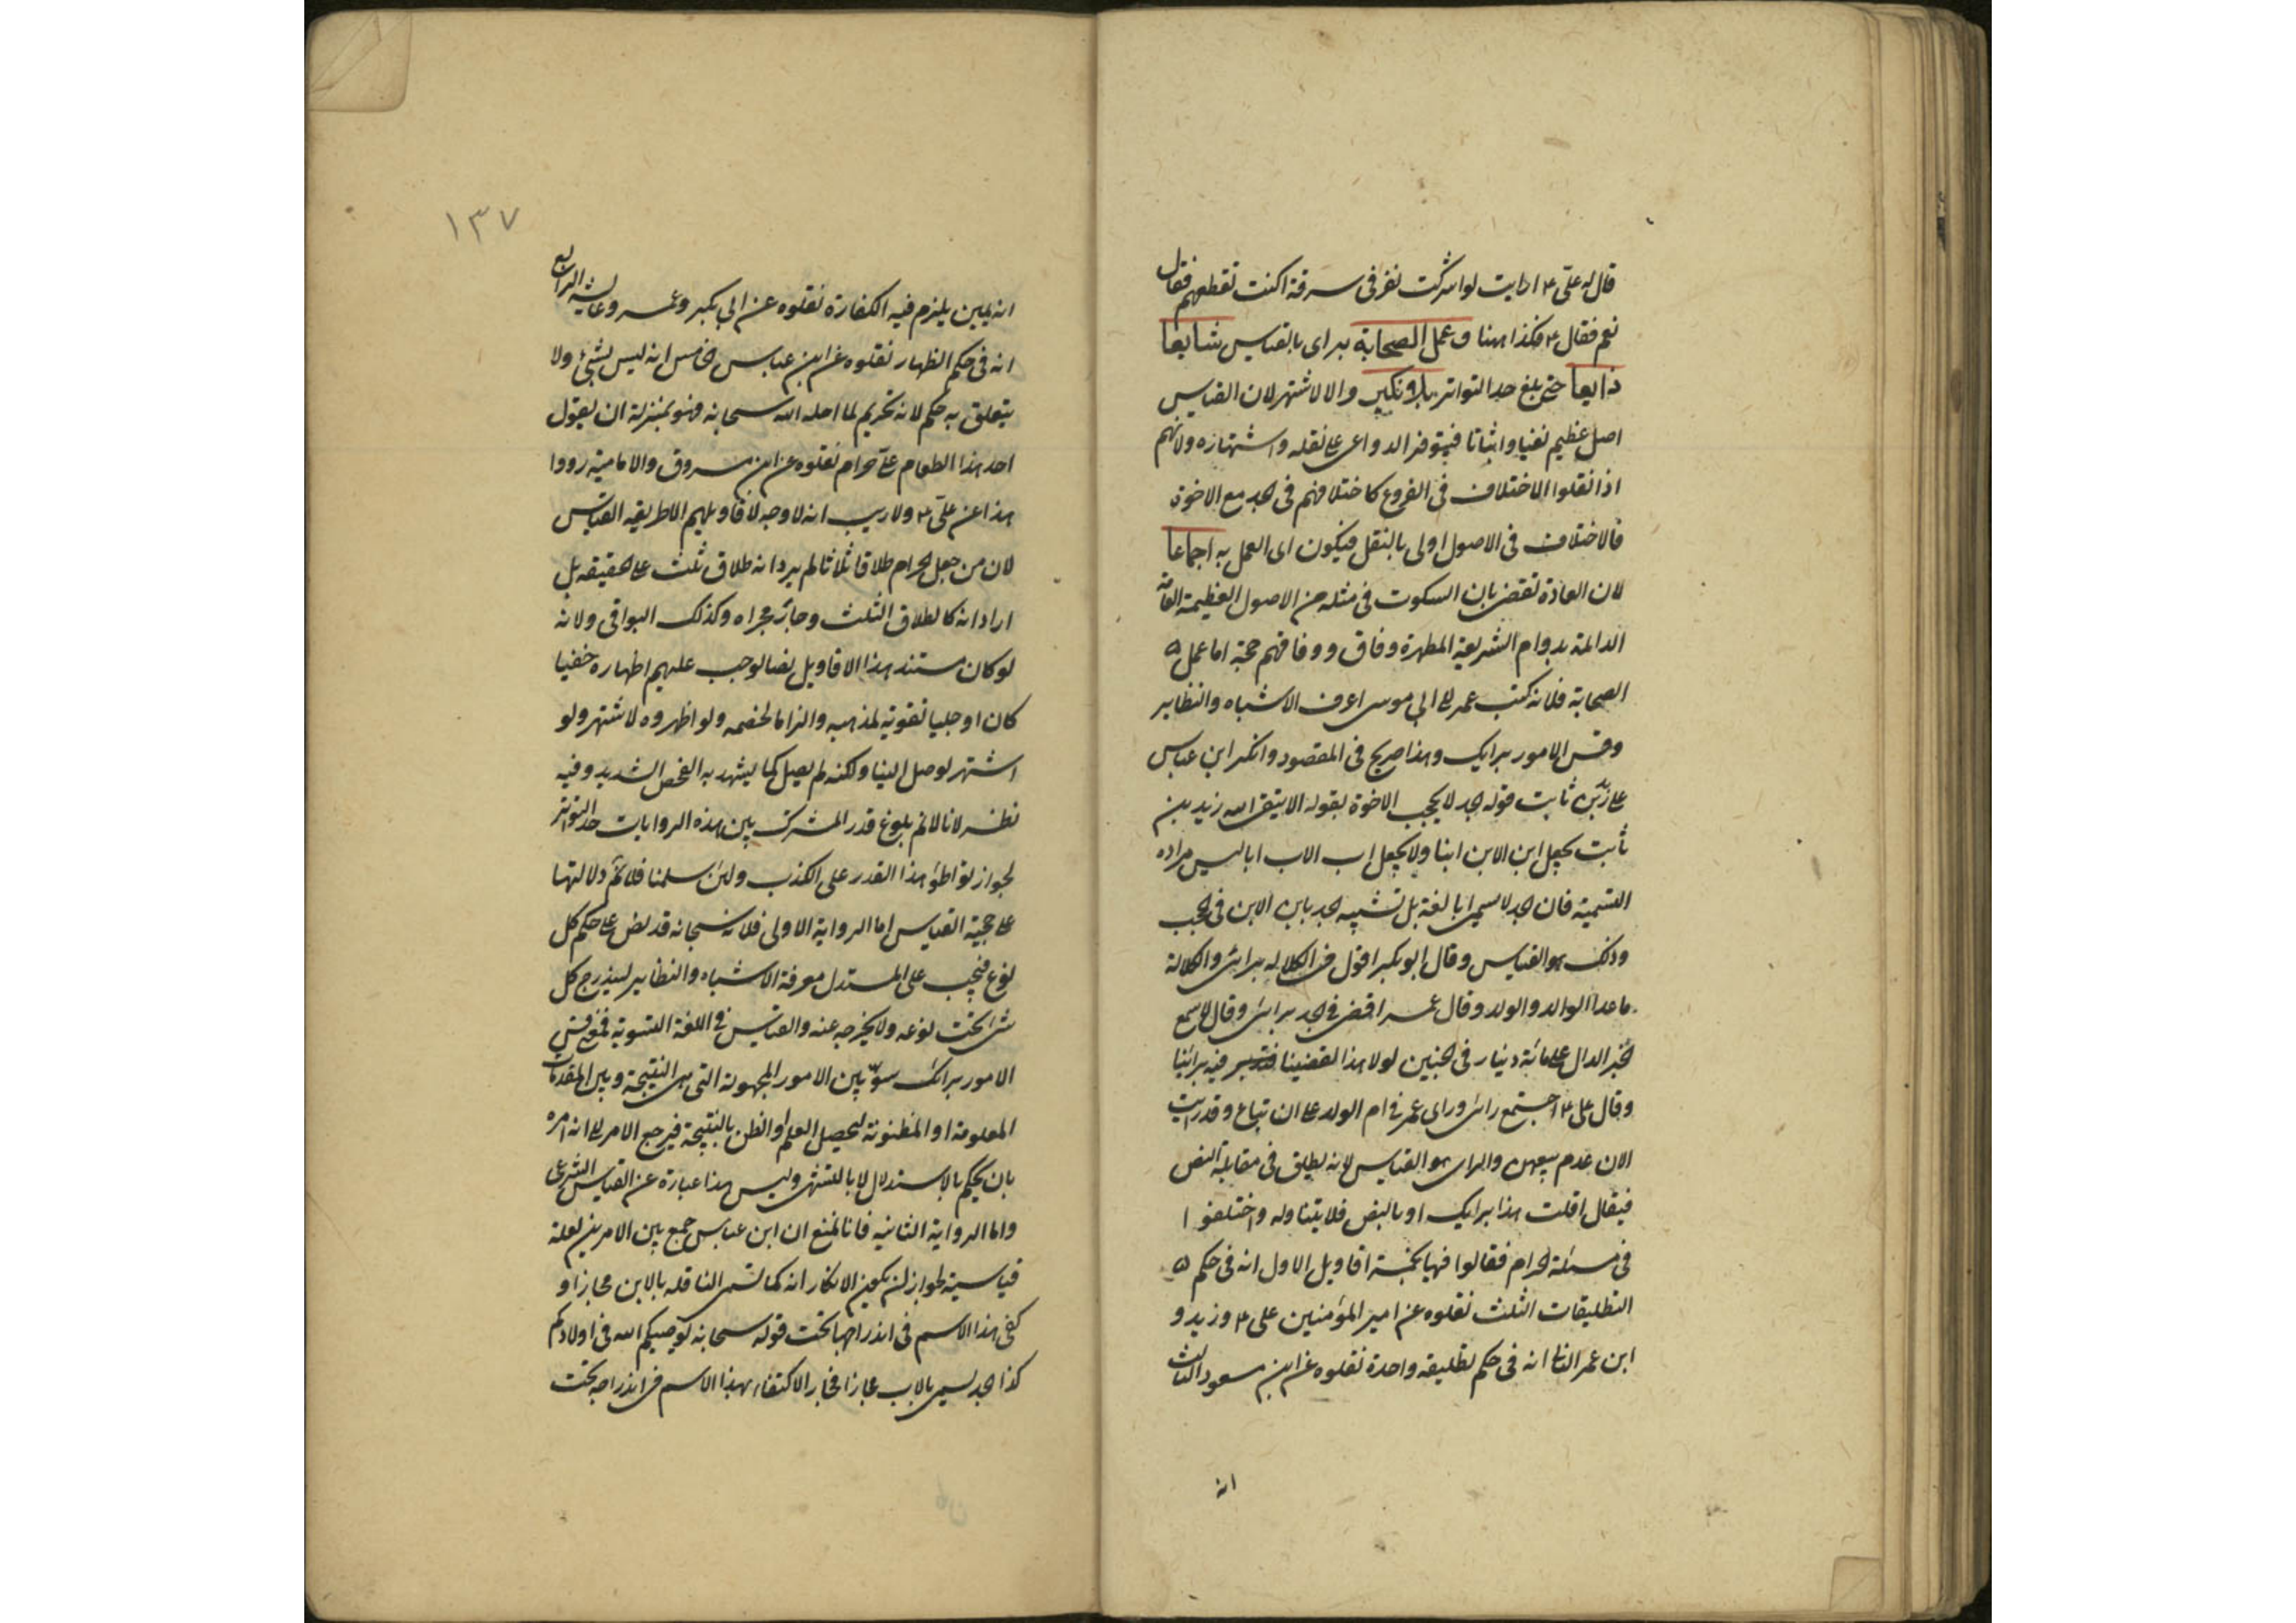 قال له علي ع ارايت لو اشركت نفر في سرقة اكنت تقطعهم فقال
نعم فقال ع فكذا هنا و عمل الصحابة به اى بالقياس شايعا
ذايعا حتى بلغ حد التواتر بلا نكير والا لاشتهر لان القياس
اصل عظيم نفيا واثباتا فيتوفر الدواعى على نقله واشتهاره ولانهم
اذا نقلوا الاختلاف فى الفروع كاختلافهم فى الجد مع الاخوة
فالاختلاف فى الاصول اولى بالنقل فيكون اى العمل به اجماعا
لان العادة تقضى بان السكوت فى مثله من الاصول العظيمة العامة
الدائمة بدوام الشريعة المطهرة وفاق ووفاقهم حجة اما عمل
الصحابة فلانه كتب عمر الى ابى موسى اعرف الاشباه والنظاير
وقس الامور برايك وهذا صريح فى المقصود وانكر ابن عباس
على زيد بن ثابت قوله الجد لا يحجب الاخوة بقوله الا يتقى الله زيد بن
ثابت يجعل ابن الابن ابنا ولا يجعل اب الاب ابا ليس مراده
التسمية فان الجد لا يسمى ابا لغة بل تشبيه الجد بابن الابن فى الحجب
وذلك هو القياس وقال ابو بكر اقول فى الكلالة برايى والكلالة
ما عدا الوالد والولد وقال عمر اقضى فى الجد برايى وقال لما سمع
الخبر الدال على مائة دينار فى الجنين لولا هذا لقضينا فيه براينا
وقال على ع اجتمع رايى وراى عمر فى ام الولد على ان تباع وقد رايت
الان عدم بيعهن والراى هو القياس لانه يطلق فى مقابلة النص
فيقال اقلت هذا برايك او بالنص فلا يتناوله واختلفوا
فى مسئلة الحرام فقالوا فيها بخمسة اقاويل الاول انه فى حكم
التطليقات الثلث نقلوه عن امير المؤمنين على ع وزيد و
ابن عمر الثانى انه فى حكم تطليقه واحدة نقلوه عن ابن مسعود الثالث
انه
١٣٧
انه يمين يلزم فيه الكفارة نقلوه عن ابي بكر وعمر وعايشة الرابع
انه فى حكم الظهار نقلوه عن ابن عباس خامس انه ليس بشئ ولا
يتعلق به حكم لانه تحريم لما احله الله سبحانه فهو بمنزلة ان يقول
احد هذا الطعام علىّ حرام نقلوه عن ابن مسروق والامامية رووا
هذا عن علي ع ولا ريب انه لا وجه لاقاويلهم الا طريقه القياس
لان من جعل الحرام طلاقا ثلاثا لم يرد انه طلاق ثلث على الحقيقه بل
اراد انه كالطلاق الثلث وجار مجراه وكذلك البواقى ولانه
لو كان مستند هذا الاقاويل نصا لوجب عليهم اظهاره خفيا
كان او جليا تقوية لمذهبه والزاما لخصمه ولو اظهروه لاشتهر ولو
اشتهر لوصل الينا ولكنه لم يصل كما يشهد به الفحص الشديد وفيه
نظر لانا لانم بلوغ قدر المشترك بين هذه الروايات حد التواتر
لجواز تواطؤ هذا القدر على الكذب ولئن سلمنا فلانم دلالتها
على حجية القياس اما الرواية الاولى فلانه سبحانه قد نص على حكم كل
نوع فيجب على المستدل معرفة الاشباه والنظاير ليندرج كل
شئ تحت نوعه ولا يخرجه عنه والقياس فى اللغة التسوية فمعنى قس
الامور برائك سوّ بين الامور المجهولة التى هى النتيجة وبين المقدمات
المعلومة او المظنونة لتحصيل العلم او الظن بالنتيجة فيرجع الامر الى انه امره
بان يحكم بالاستدلال لا بالتشهى وليس هذا عبارة عن القياس الشرعى
واما الرواية الثانيه فانا نمنع ان ابن عباس جمع بين الامرين لعلة
قياسية لجواز ان يكون الانكار انه كما تسمى النافله بالابن مجازا و
كفى هذا الاسم فى اندراجها تحت قوله سبحانه يوصيكم الله فى اولادكم
كذا الجد يسمى بالاب مجازا فجاز الاكتفاء بهذا الاسم فى اندراجه تحت